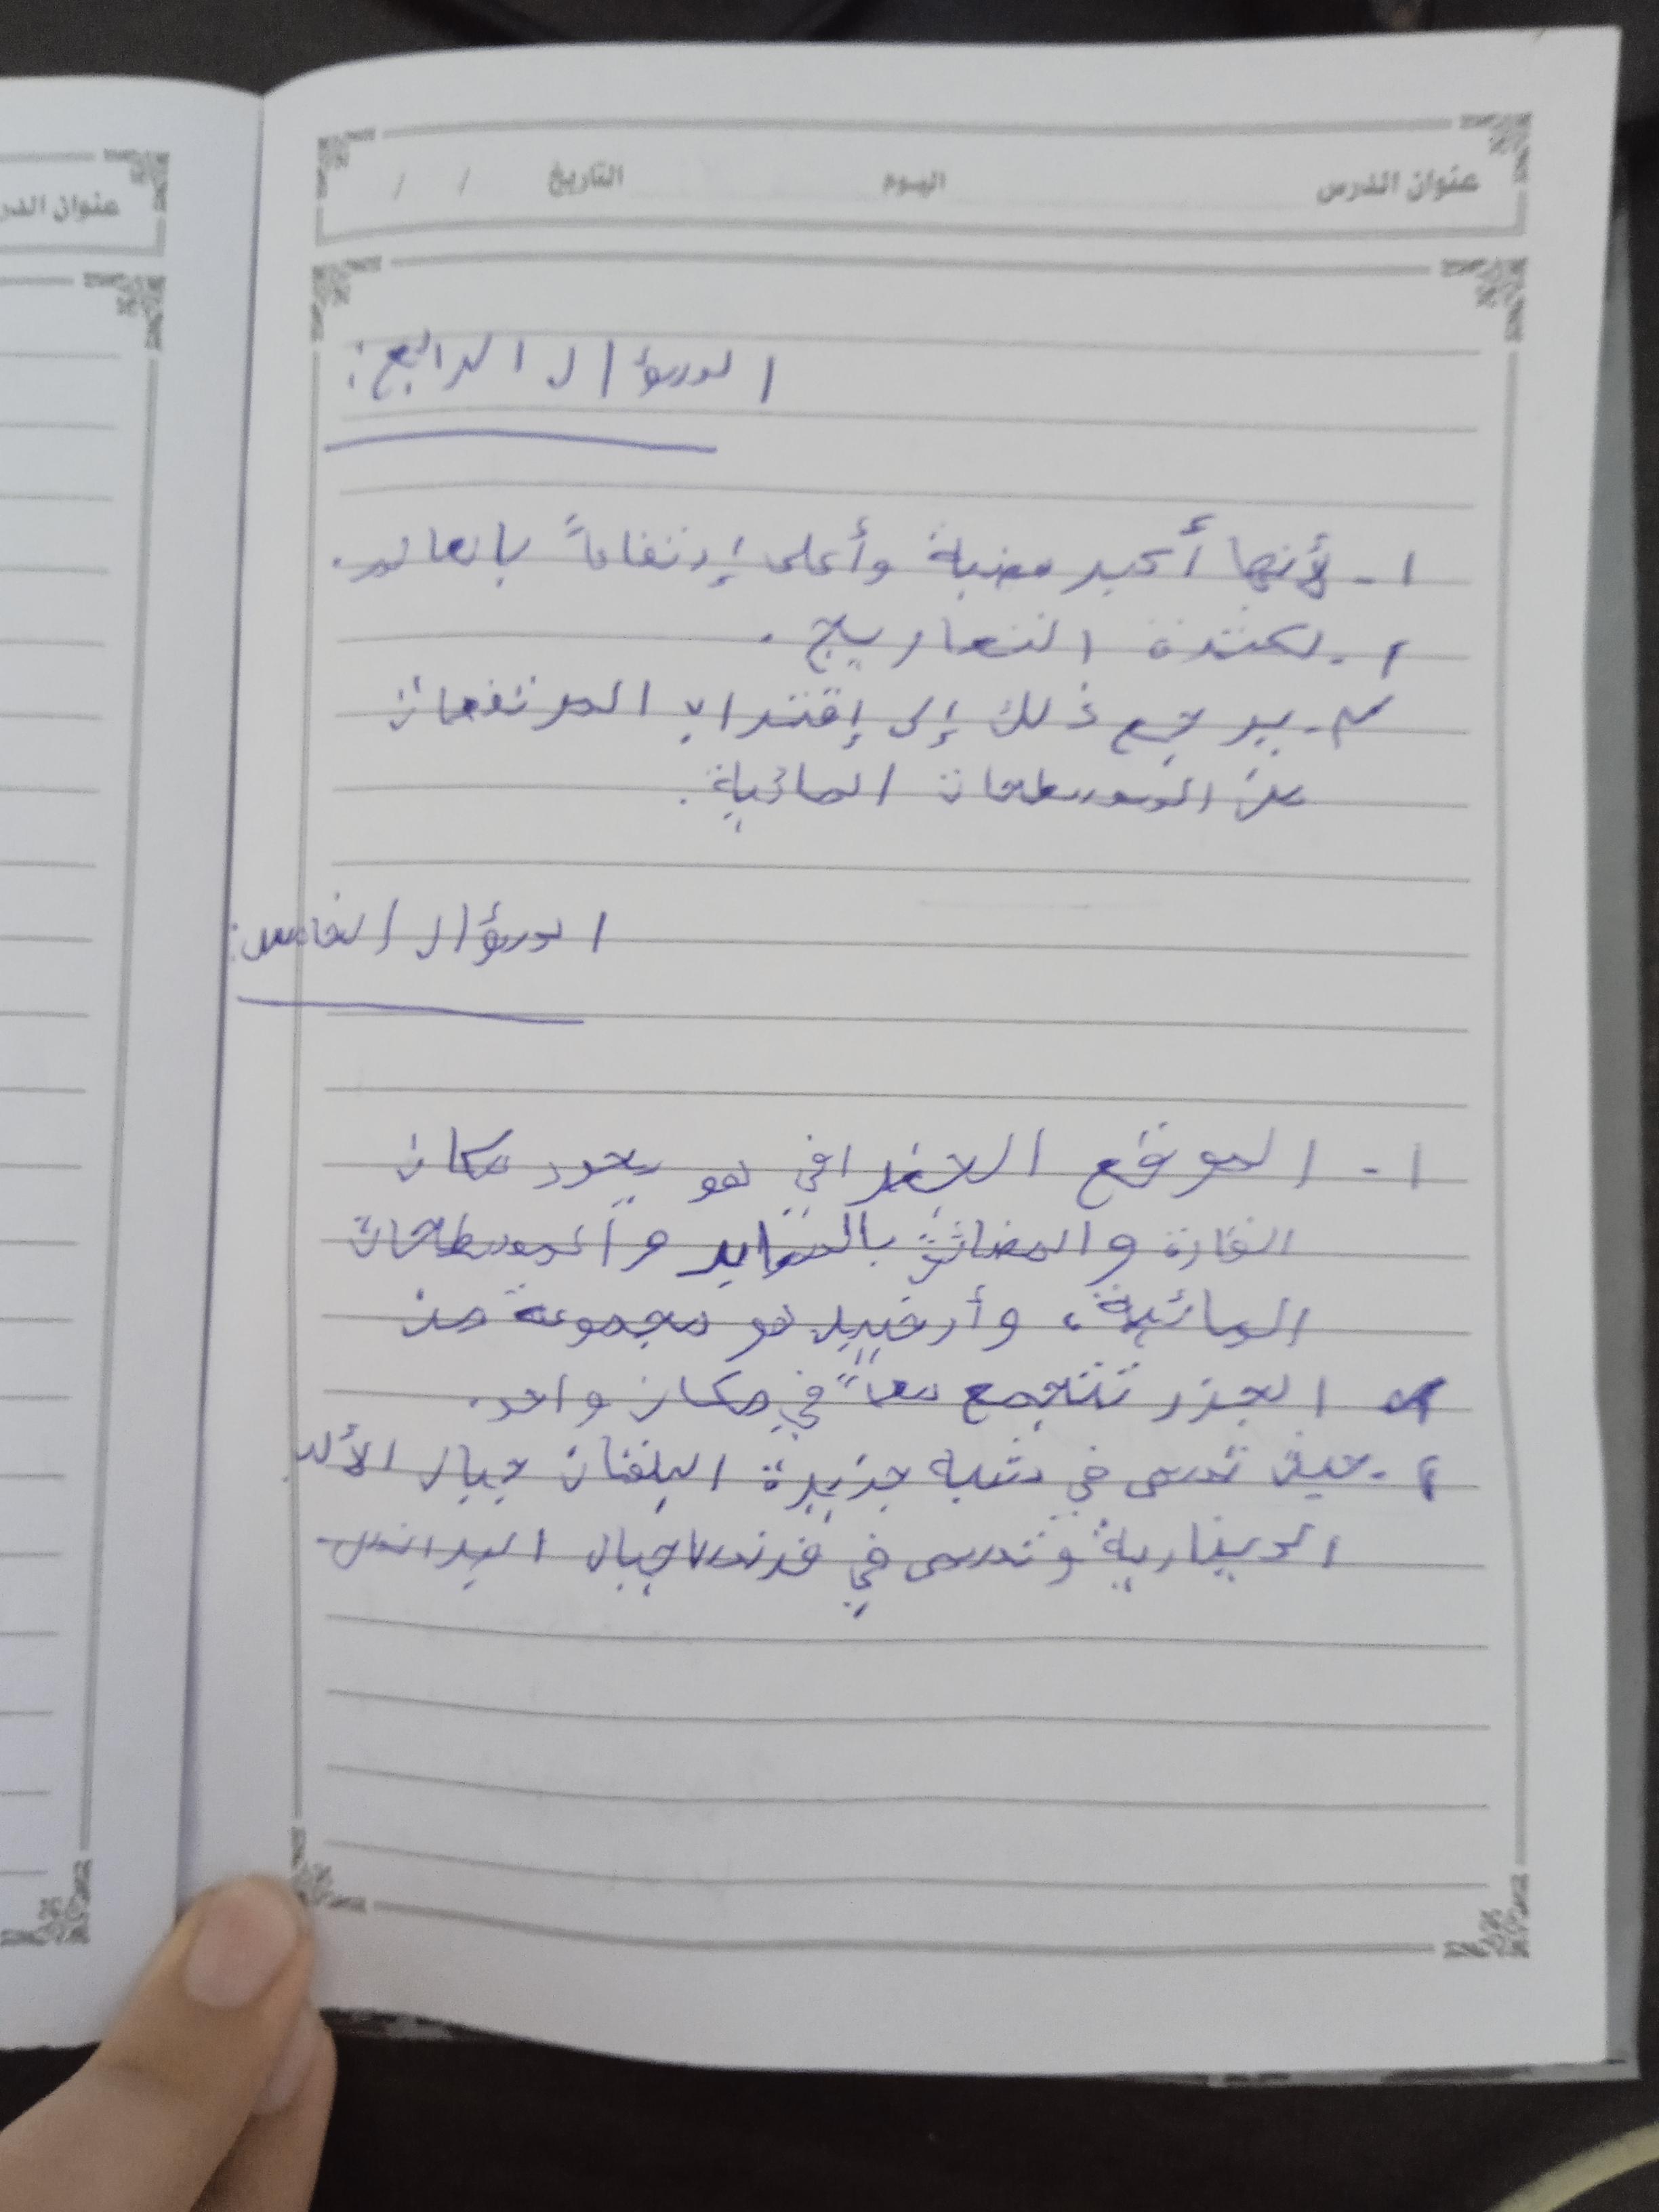 عنوان الدرس اليوم التاريخ / /
عنوان الدر
السؤال الرابع:
١- لأنها أكبر هضبة وأعلى إرتفاعاً بالعالم.
٢- لكثرة التعاريج.
٣- يرجع ذلك إلى إقتراب المرتفعات
من المسطحات المائية.
السؤال الخامس:
١- الموقع الجغرافي هو يحدد مكان
القارة والمضائق بالنسبة والمسطحات
المائية، وأرخبيل هو مجموعة من
الجزر تتجمع معاً في مكان واحد.
٢- حيث تسمى في شبه جزيرة البلقان جبال الألب
الدينارية وتسمى في فرنسا جبال البرانس